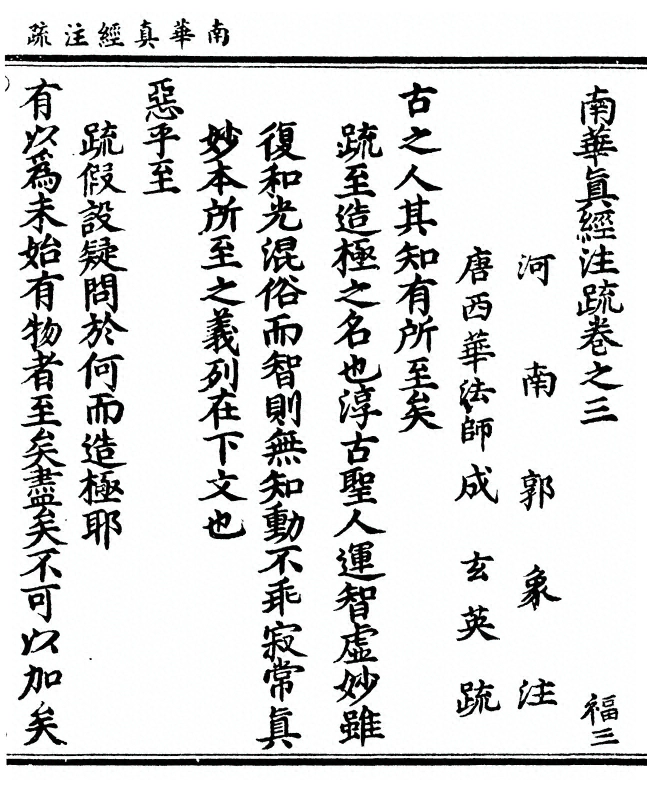 南華真經注疏
南華真經注疏卷之三 福三
河南郭象注
唐西華法師成玄英疏
古之人其知有所至矣
疏至造極之名也淳古聖人運智虛妙雖
復和光混俗而智則無知動不乖寂常真
妙本所至之義列在下文也
惡乎至
疏假設疑問於何而造極耶
有以為未始有物者至矣盡矣不可以加矣